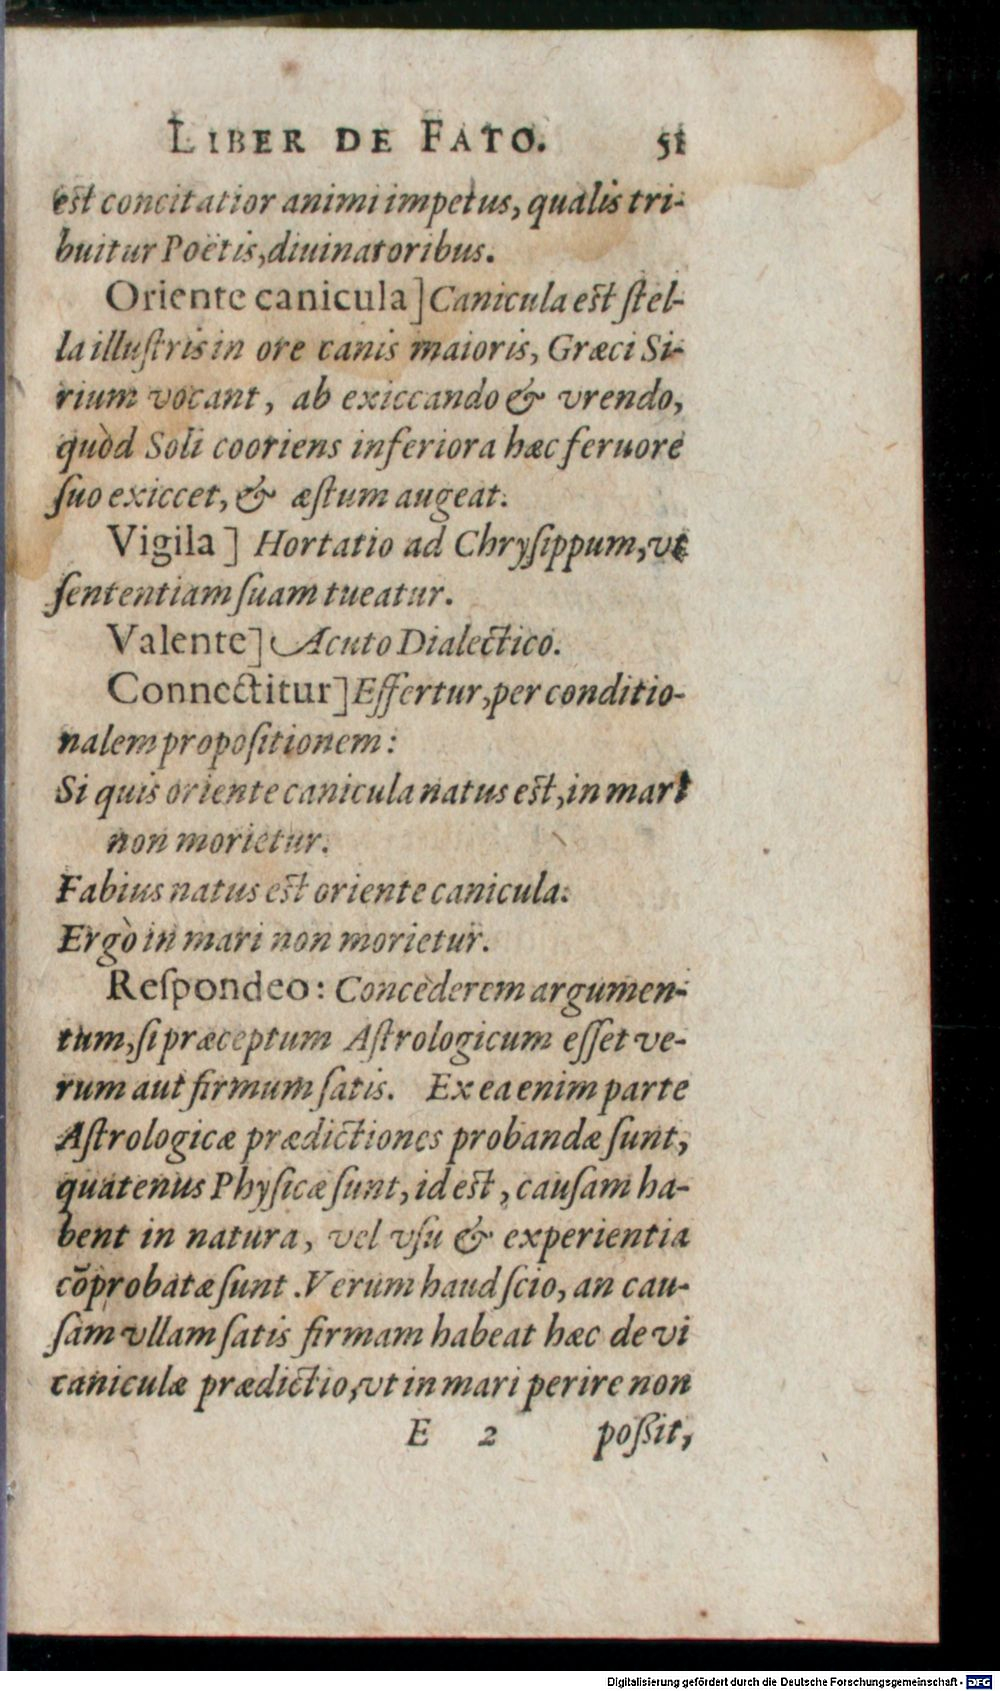 LIBER DE FATO. 51
est concitatior animi impetus, qualis tri-
buitur Poëtis, diuinatoribus.
Oriente canicula] Canicula est ſtel-
la illuſtris in ore canis maioris, Græci Si-
rium vocant, ab exiccando & vrendo,
quòd Soli cooriens inferiora hæc feruore
ſuo exiccet, & æſtum augeat.
Vigila] Hortatio ad Chryſippum, vt
ſententiam ſuam tueatur.
Valente] Acuto Dialectico.
Connectitur] Effertur, per conditio-
nalem propoſitionem:
Si quis oriente canicula natus est, in mari
non morietur.
Fabius natus est oriente canicula.
Ergò in mari non morietur.
Reſpondeo: Concederem argumen-
tum, ſi præceptum Aſtrologicum eſſet ve-
rum aut firmum ſatis. Ex ea enim parte
Aſtrologicæ prædictiones probandæ ſunt,
quatenus Phyſicæ ſunt, id est, cauſam ha-
bent in natura, vel vſu & experientia
cōprobatæ ſunt. Verum haud ſcio, an cau-
ſam vllam ſatis firmam habeat hæc de vi
caniculæ prædictio, vt in mari perire non
E 2 poßit,
Digitalisierung gefördert durch die Deutsche Forschungsgemeinschaft - DFG